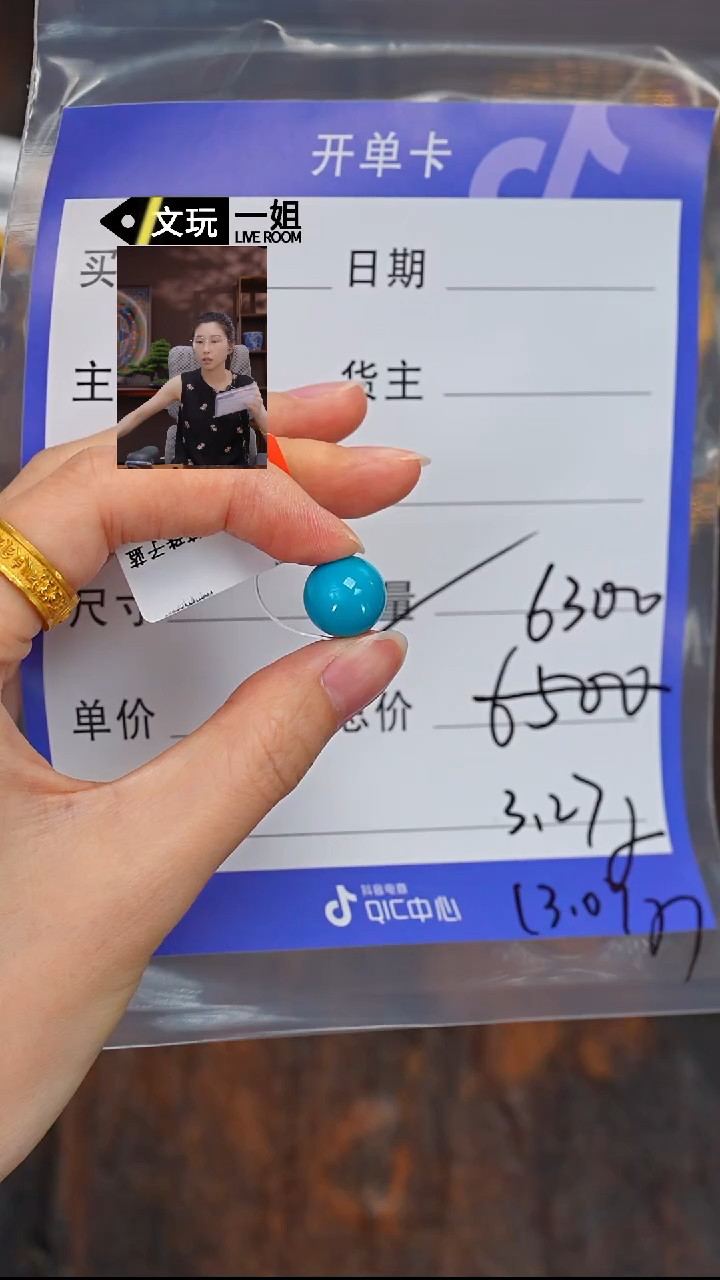 开单卡
文玩 一姐
LIVE ROOM
买
日期
主
货主
子蓝
尺寸
量
6300
单价
总价
6500
3.27g
13.09
抖音电商
QIC中心